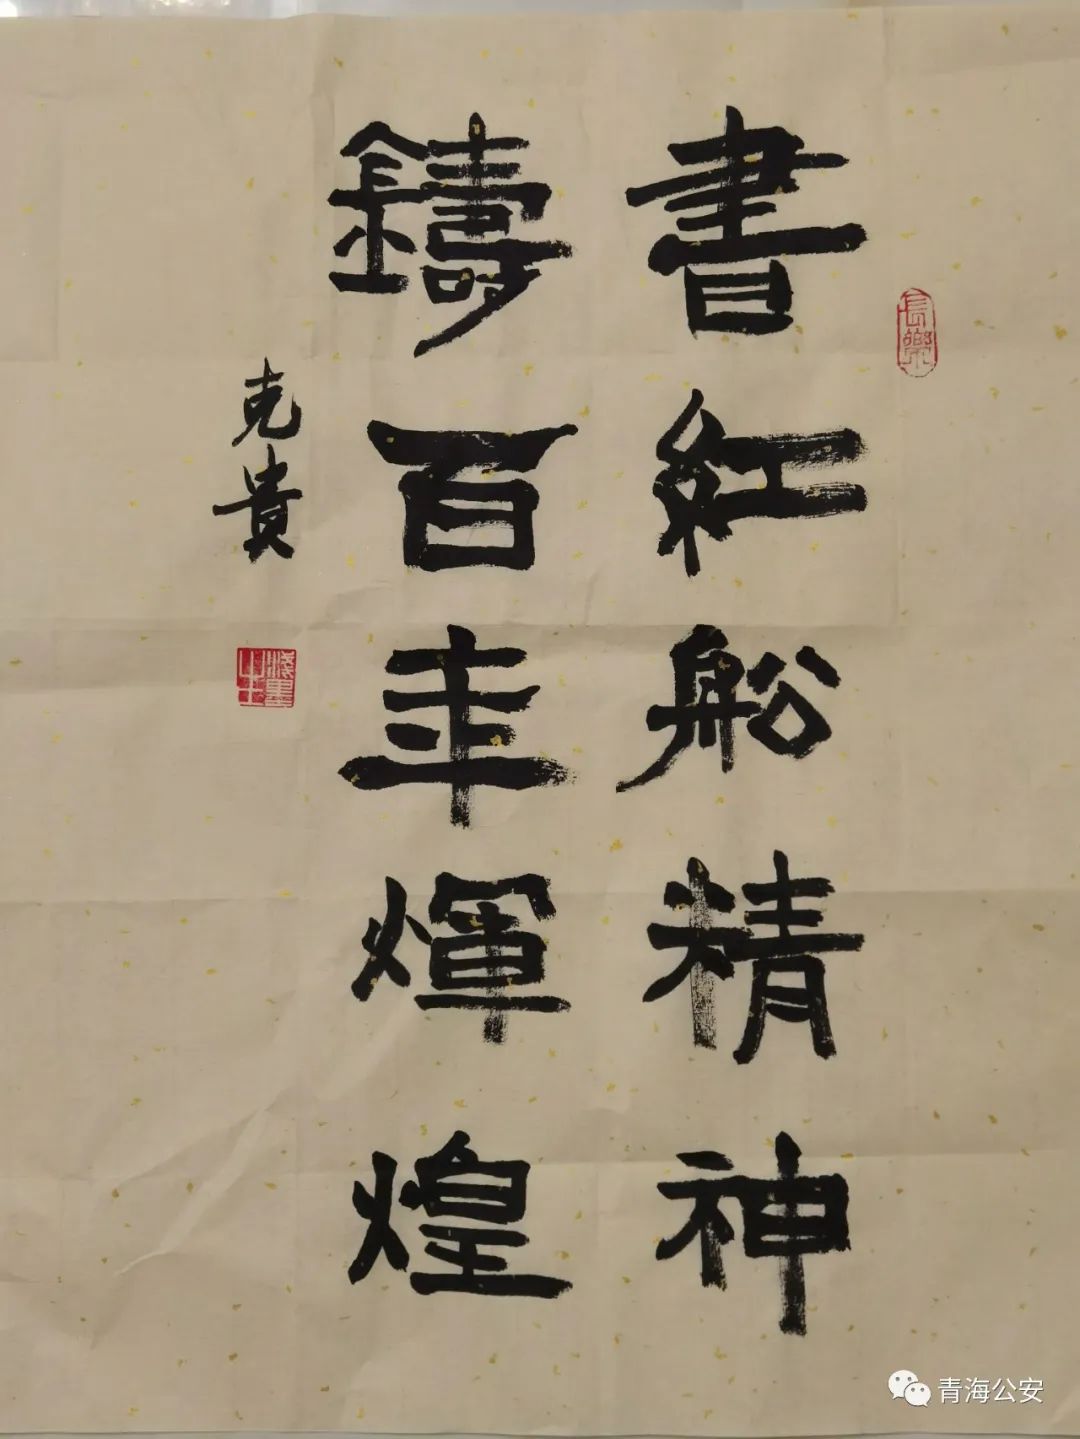 書紅船精神
鑄百年輝煌
克貴
長樂
淺墨
青海公安